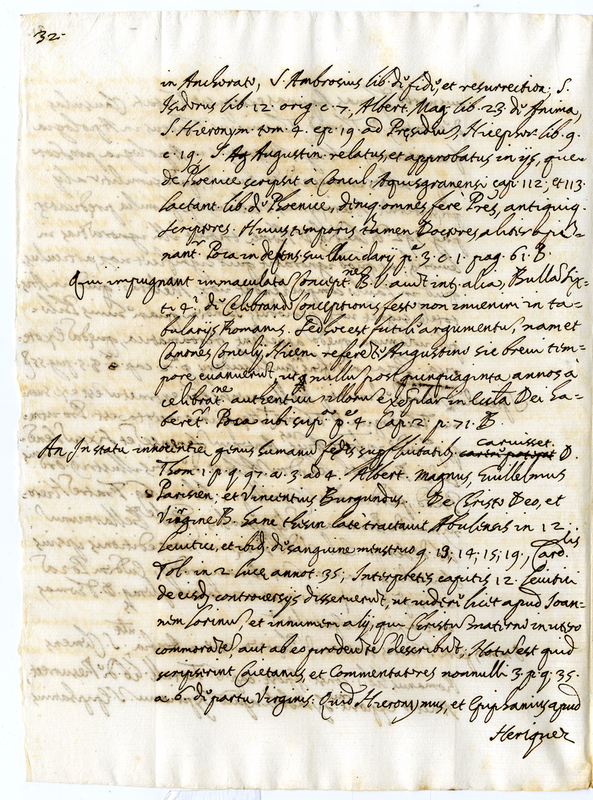 32.
in Anchorato, S. Ambrosius lib. de fide, et resurrection; S.
Isidorus lib. 12. orig. c. 7, Albert. Mag. lib. 23. de Anima,
S. Hieronym. tom. 4. ep. 19 ad Presidiu, Nicephor. lib. 9.
c. 19, S. Augustin. relatus, et approbatus in ijs, que
de Phoenice scripsit à Concil. Aquisgranensi cap. 112, et 113
lactant. lib. de Phoenice, deniq omnes fere Pres, antiquiq
scriptores. Huius temporis tamen Doctores aliter opi=
nant.r Poca in defens. sui Elucidarij p.e 3. c. 1. pag. 61. B.
Qui impugnant immaculata Concept.ne B. V. aiut int. alia, Bulla Six=
ti 4.i de Celebrando Conceptionis festo non inveniri in ta=
bularijs Romanis. sed hoc est futile argumentu, nam et
Canones Concilij Niceni referete Augustino sic brevi tem=
pore evanuerut, ut nullu post quinquaginta annos à
celebrat.ne authenticu illorum exeplar in Ecclia Dei ha=
beret.r Poca ubi sup.r p.e 4. Cap. 2. p. 71. B
An in statu innocentie genus humanu sedis superfluitatib. caruisset. D.
Thom. 1. p. q. 97. a. 3. ad 4. Albert. Magnus, Guillelmus
Parisien; et Vincentius Burgundus. De Christo Deo, et
Virgine B. hanc thesin late tractavit Abulensis in 12.
Levitici, et ibid. de sanguine menstruo q. 13, 14, 15, 19, Card.lis
Tol. in 2. luce annot. 35; Interpretes capitis 12. Levitici
de eisd. controversijs disserverut, ut videri licet apud Joan=
nem Lorinus, et innumeri alij, qui Christu materno in utero
commorate, aut ab eo prodeunte describut, Notu est quid
scripserint Caietanus, et Commentatores nonnulli 3. p. q. 35.
a. 6. de partu Virginis. Quid Hieronymus, et Epiphanius apud
Heriquez